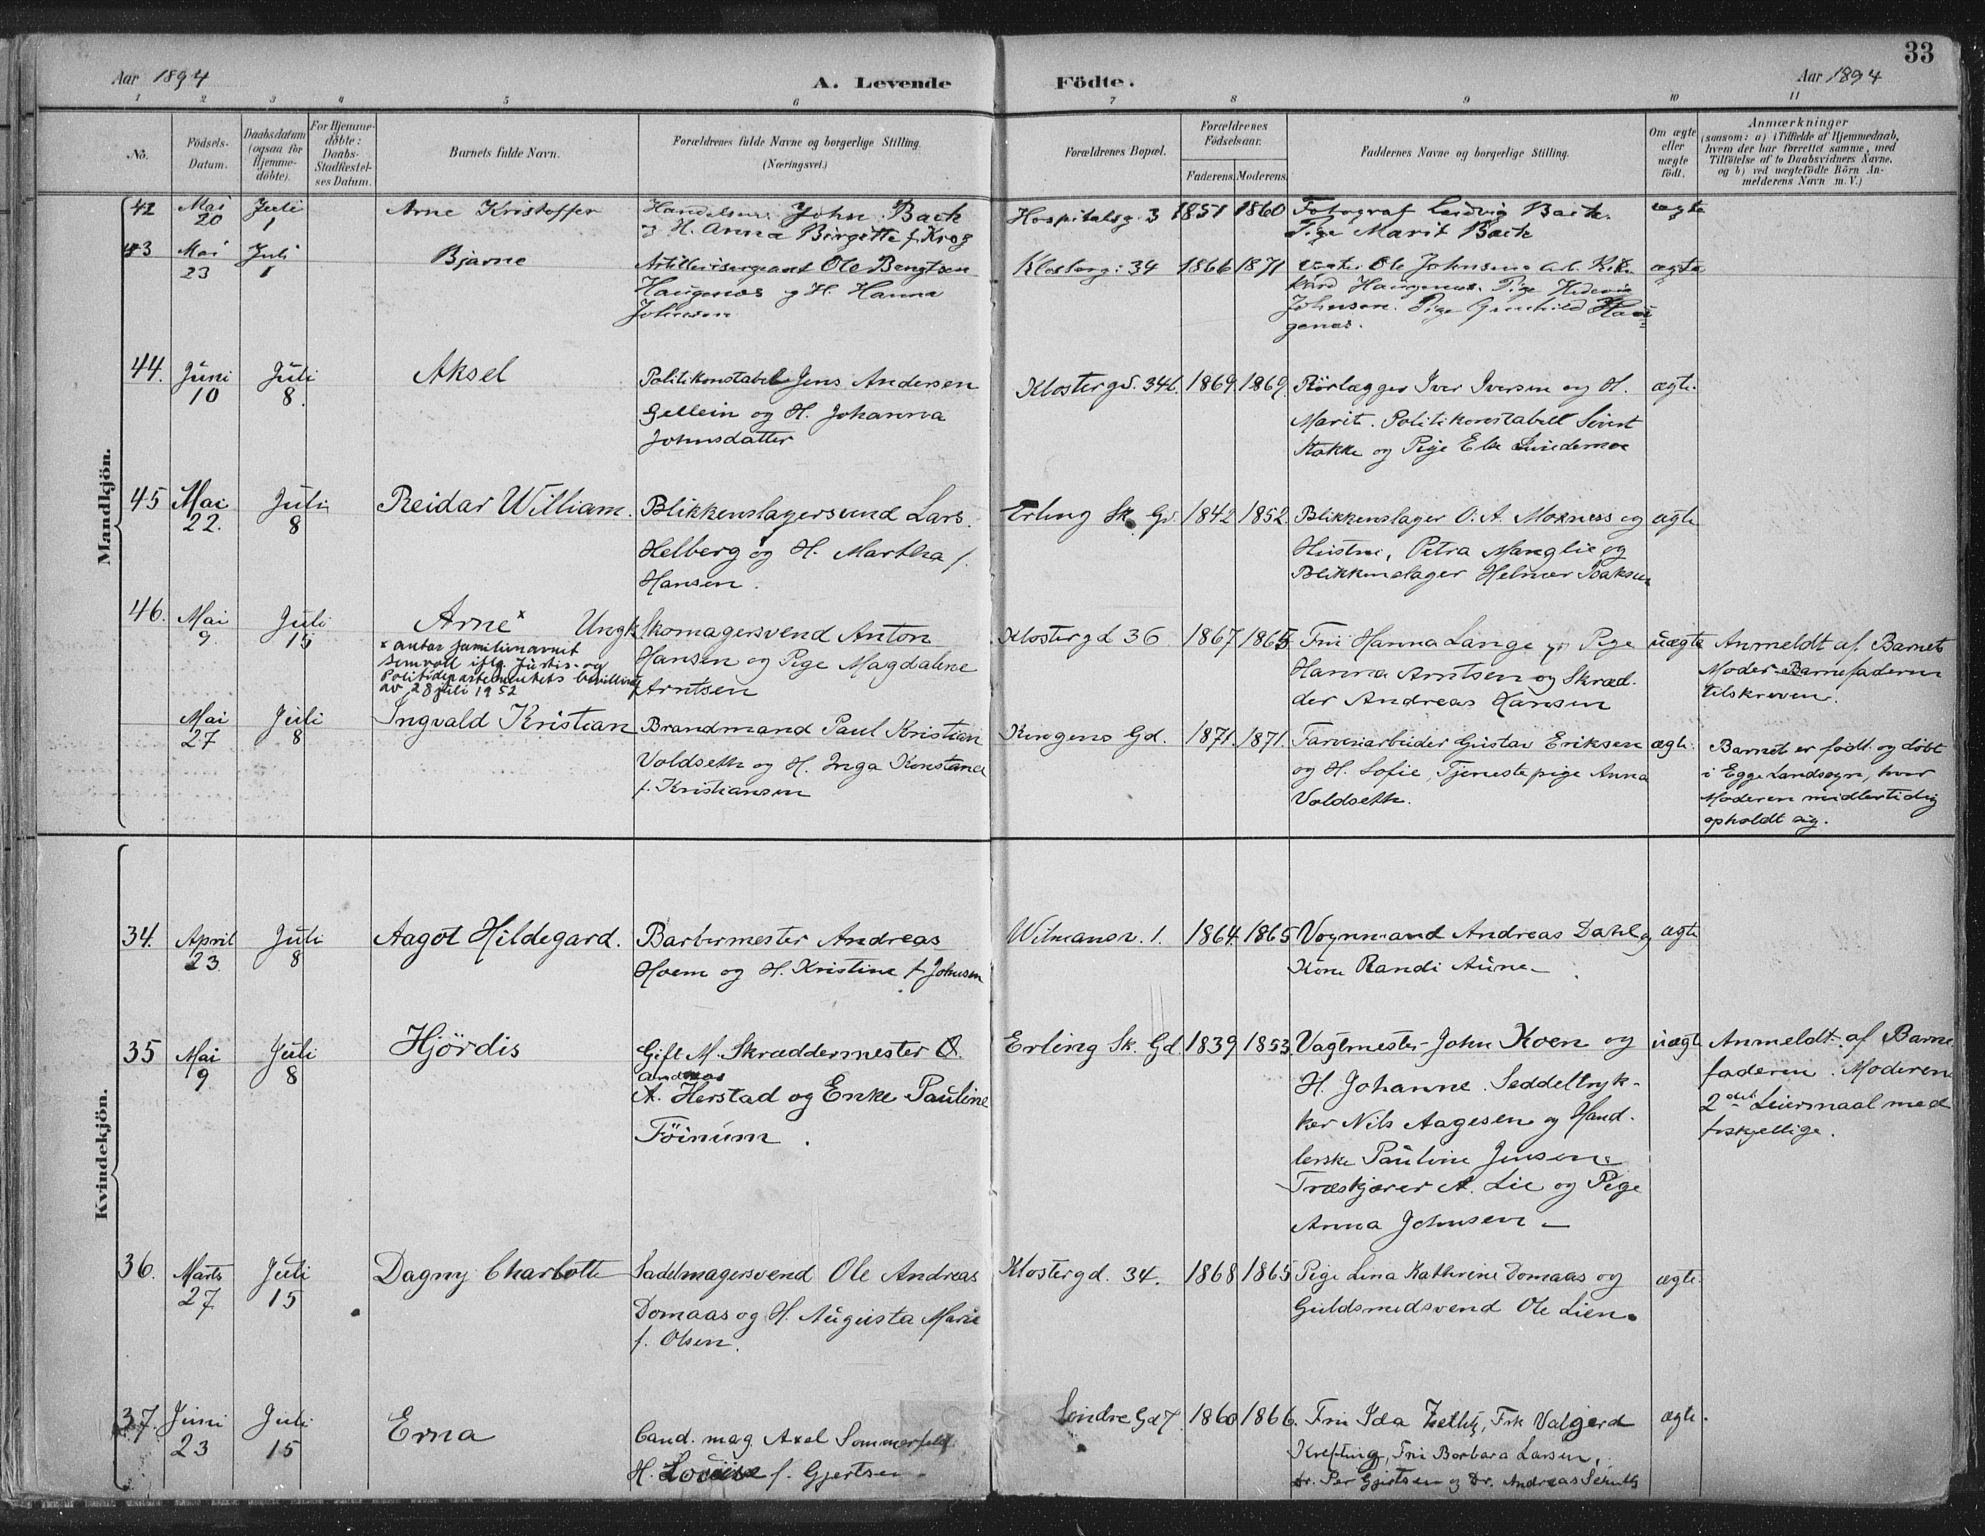 33
Aar 1894 A. Levende Födte. Aar 1894
1 2 3 4 5 6 7 8 9 10 11
No.
Födsels-
Datum.
Daabsdatum
(ogsaa for
Hjemme-
döbte).
For Hjemme-
döbte:
Daabs-
Stadfæstel-
ses Datum.
Barnets fulde Navn.
Forældrenes fulde Navne og borgerlige Stilling.
(Næringsvei.)
Forældrenes Bopæl.
Forældrenes
Födselsaar.
Faderens. Moderens.
Faddernes Navne og borgerlige Stilling.
Om ægte
eller
uægte
födt.
Anmærkninger
(saasom: a) i Tilfælde af Hjemmedaab,
hvem der har forrettet samme, med
Tilföielse af to Daabsvidners Navne,
og b) ved uægtefödte Börn An-
melderens Navn m. V.)
Mandkjön.
42 Mai 20 Juli 1 Arne Kristoffer
John Back
og H. Anna Birgitte f. Krog
Hospitalsg. 3 1857 1860
Fotograf Ludvig Back.
Pige Marit Back
ægte
43 Mai 23 Juli 1 Bjarne
Artillerisergeant Ole Bengtsen
Haugenæs og H. Hanna
Johnsen
Klosterg: 34 1866 1871
Ole Johnsen
Haugenæs. Pige Hedevig
Johnsen. Pige Gunhild Hau-
genæs.
ægte
44. Juni 10 Juli 8. Aksel
Politikonstabel Jens Andersen
Gellein og H. Johanna
Johnsdatter
Klostergd. 34b. 1869 1869.
Rörlægger Iver Iversen og H.
Marit. Politikonstabell Sivert
Stokke og Pige Else Lindemoe
ægte.
45 Mai 22. Juli 8 Reidar William.
Blikkenslagersvend Lars
Helberg og H. Martha f.
Hansen.
Erling Sk. Gd. 1842 1852
Blikkenslager O. A. Moxness og
Hustru, Petra Manglie og
Blikkenslager Helmer Isaksen
ægte
46. Mai 9. Juli 15 Arne x
x antar familienavnet
iflg. Justis- og
Politidepartementets bevilling
av 28 juli 1952
Skomagersvend Anton
Hansen og Pige Magdalene
Arntsen
Klostergd 36 1867 1865
Fru Hanna Lange, Pige
Hanna Arntsen og Skræd-
der Andreas Hansen
uægte
Anmeldt af Barnets
Moder. Barnefaderen
tilskreven.
Mai 27 Juli 8 Ingvald Kristian
Brandmand Paul Kristian
Voldseth og H. Inga Konstance
f. Kristiansen
Kongens Gd. 1871. 1871.
Farveriarbeider Gustav Eriksen
og H. Sofie, Tjenestepige Anna
Voldseth.
ægte.
Barnet er født og døbt
i Egge Landsogn, hvor
Moderen midlertidig
opholdt sig.
Kvindekjön.
34. April 23. Juli 8 Aagot Hildegard.
Barbermester Andreas
Hoem og H. Kristine f. Johnsen
Wilmansv. 1. 1864 1865
Vognmand Andreas Dahl og
Kone Randi Aune
ægte
35 Mai 9. Juli 8 Hjördis
Gift M. Skræddermester O.
Andreas
A. Herstad og Enke Pauline
Föinum.
Erling Sk. Gd. 1839 1853
Vagtmester John Koen og
H. Johanne. Seddeltryk-
ker Nils Aagesen og Hand-
lerske Pauline Jensen.
Træskjærer A. Lie og Pige
Anna Johnsen
uægt
Anmeldt af Barne
faderen. Moderens
2det Leiermaal med
forskjellige.
36. Marts 27 Juli 15 Dagny Charlotte
Sadelmagersvend Ole Andreas
Domaas og H. Augusta Marie
f. Olsen.
Klostergd. 34. 1868 1865
Pige Lina Kathrine Domaas og
Guldsmedsvend Ole Lien.
ægte.
37. Juni 23 Juli 15 Erna
Cand. mag. Axel Sommerfelt
H. Louise f. Gjertsen
Söndre Gd 7. 1860 1866.
Fru Ida Zetlitz, Frk Valgerd
Krefting, Fru Barbara Larsen,
Dr. Per Gjertsen og Dr. Andreas Schultz
ægte.